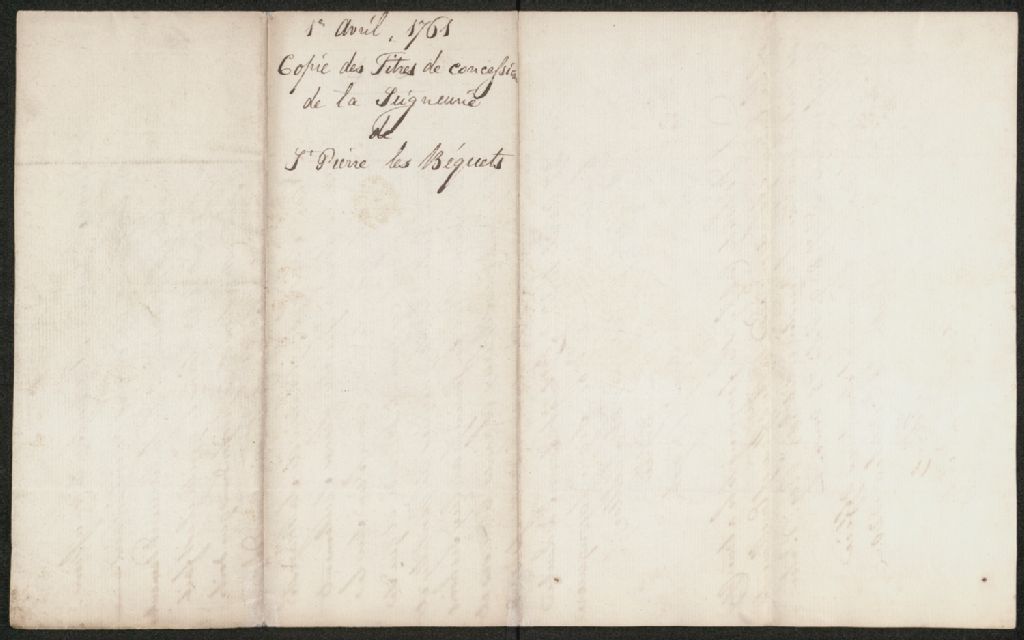 1er Avril, 1761
Copie des Titres de concession
de la Seigneurie
de
St Pierre les Béquets